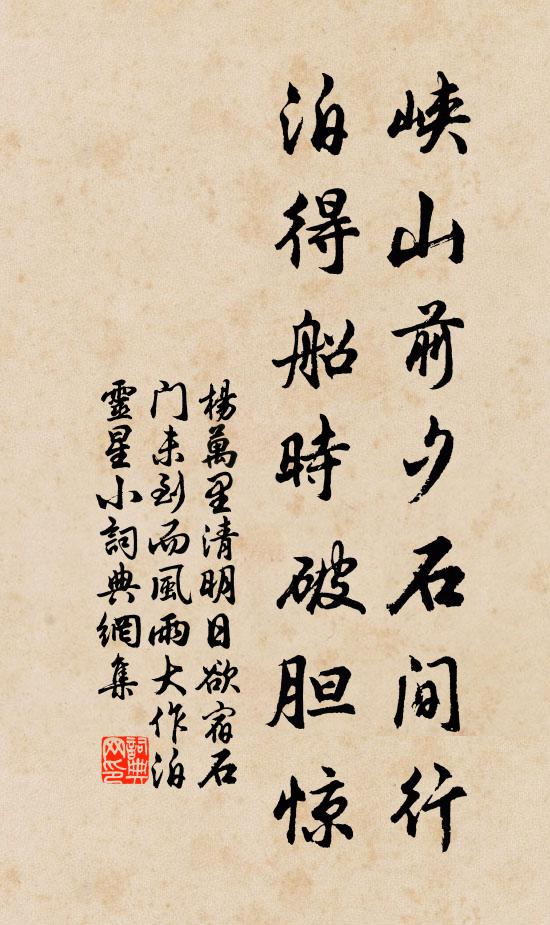 峡山前夕石间行
泊得船時破胆惊
楊萬里清明日欲宿石
门未到而風雨大作泊
靈星小詞典網集
詞典网印